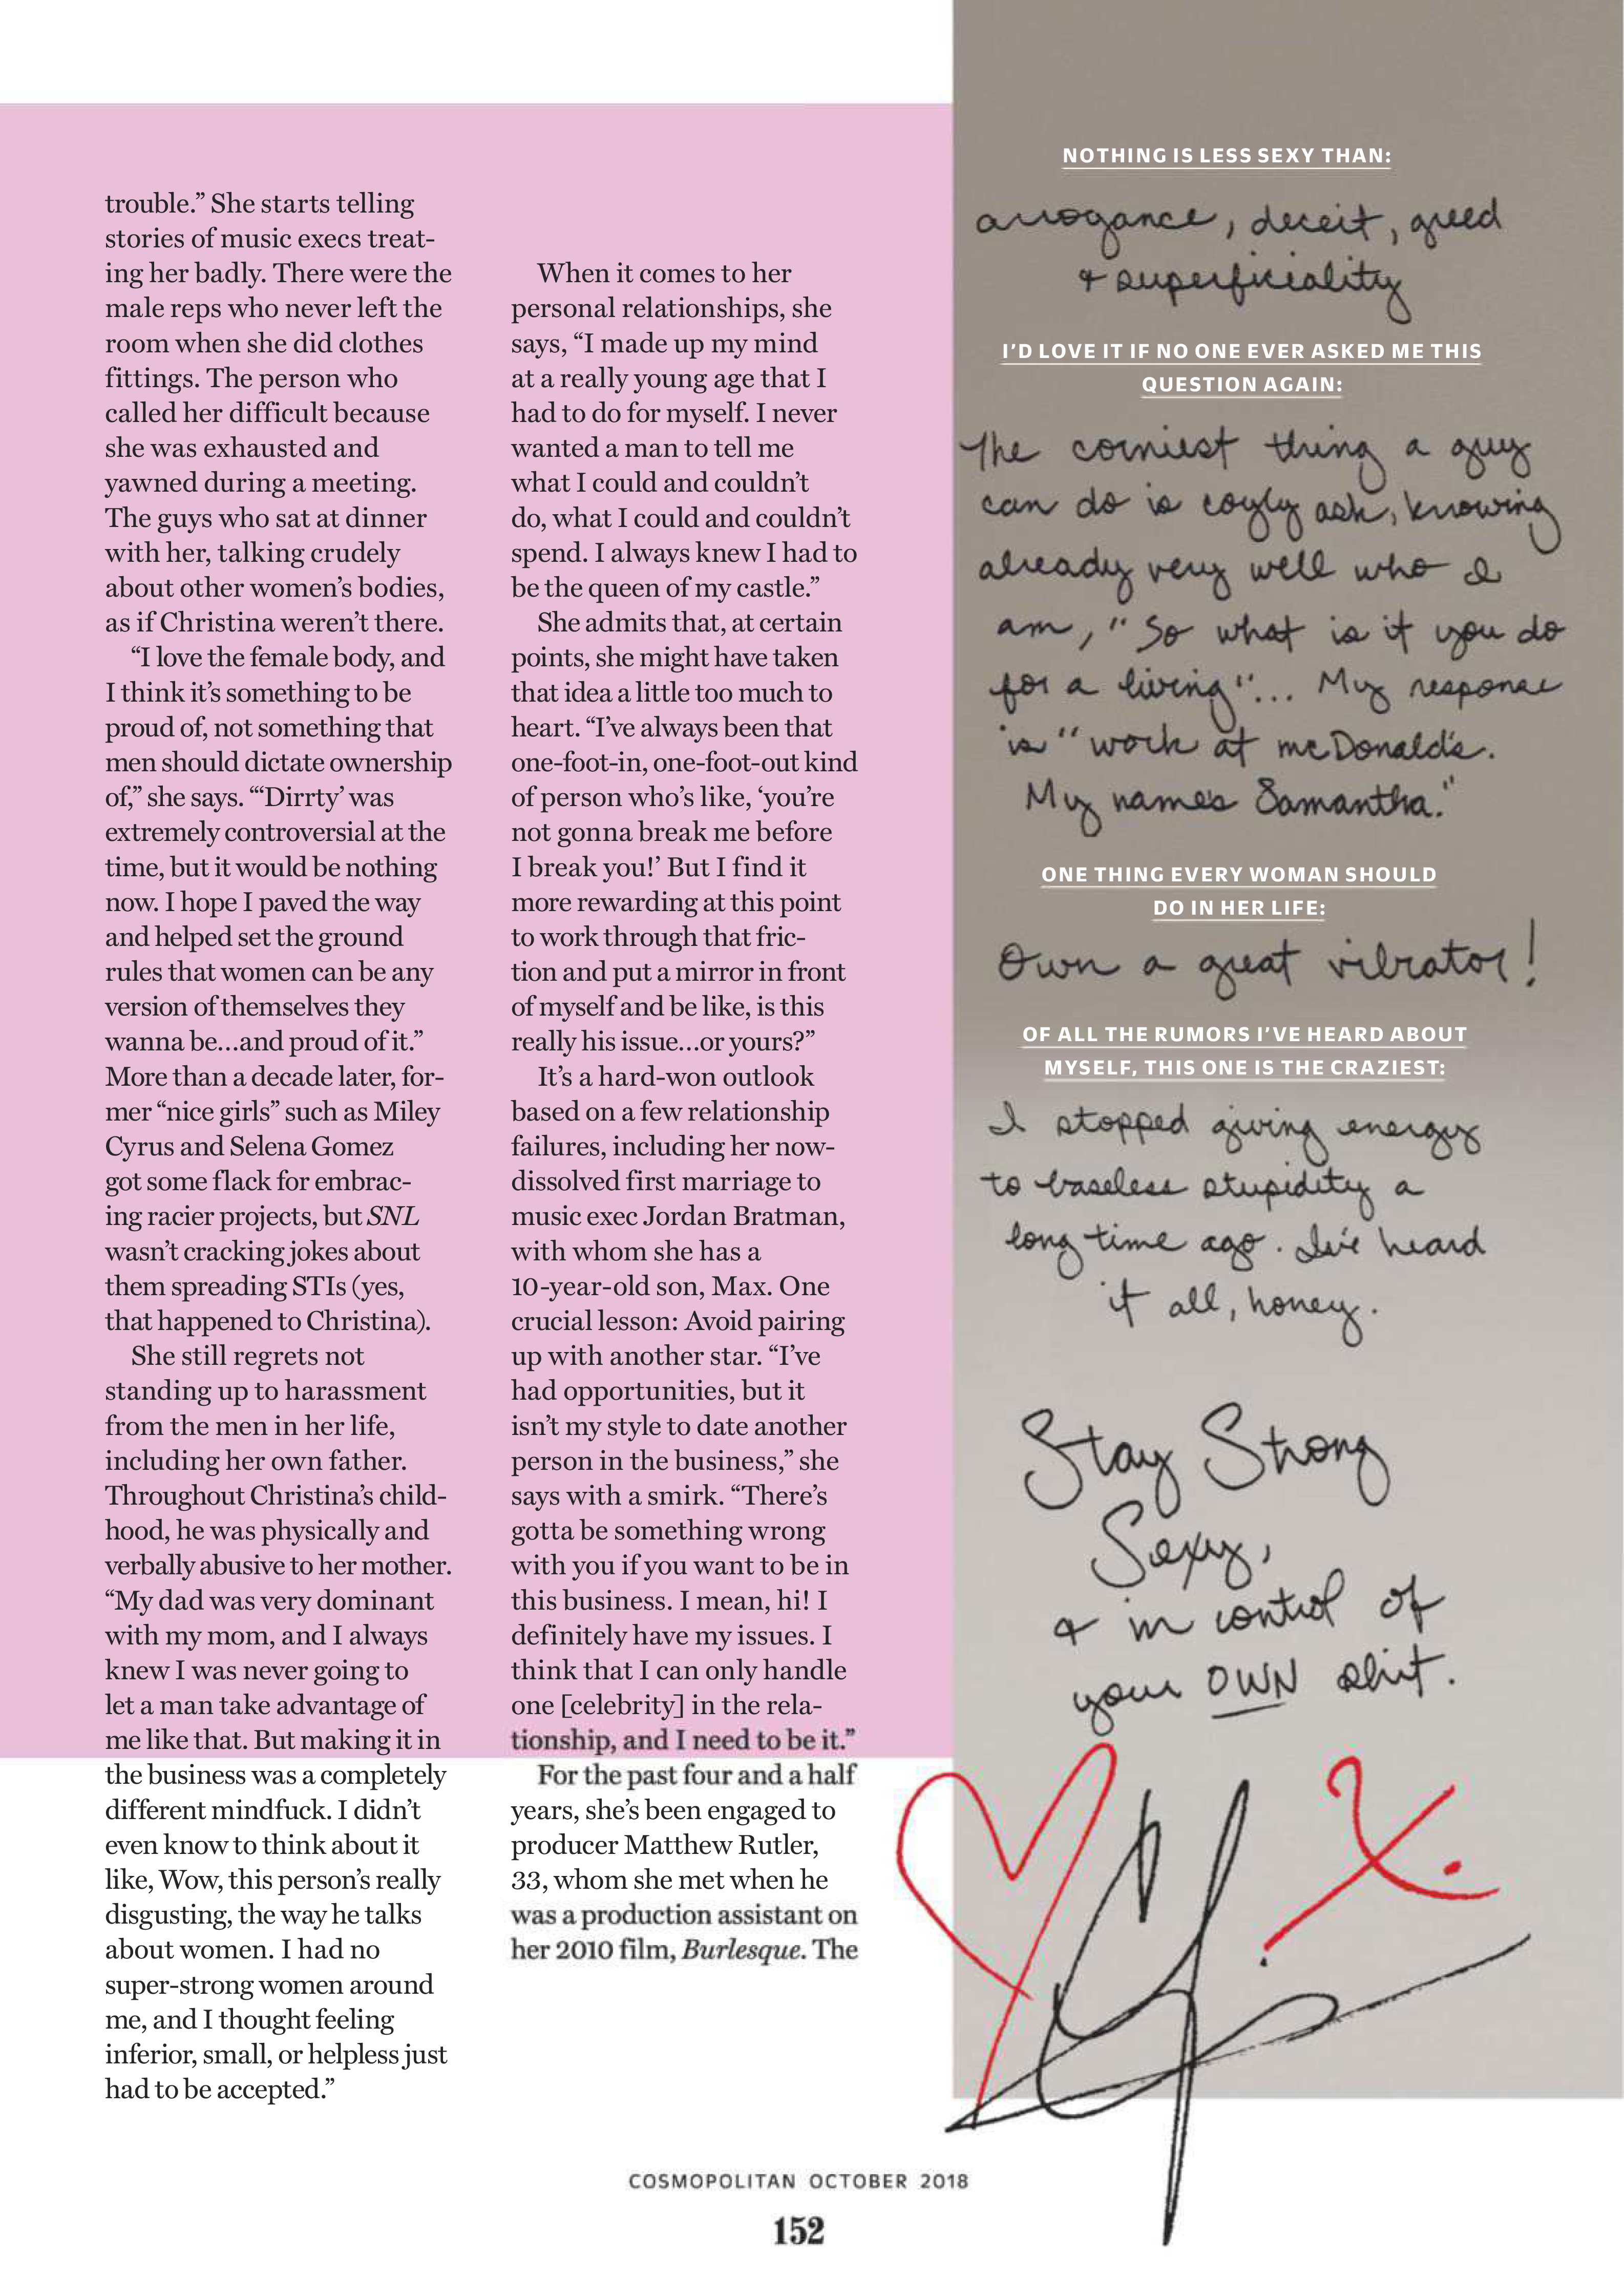 trouble.” She starts telling
stories of music execs treat-
ing her badly. There were the
male reps who never left the
room when she did clothes
fittings. The person who
called her difficult because
she was exhausted and
yawned during a meeting.
The guys who sat at dinner
with her, talking crudely
about other women’s bodies,
as if Christina weren’t there.
“I love the female body, and
I think it’s something to be
proud of, not something that
men should dictate ownership
of,” she says. “‘Dirrty’ was
extremely controversial at the
time, but it would be nothing
now. I hope I paved the way
and helped set the ground
rules that women can be any
version of themselves they
wanna be...and proud of it.”
More than a decade later, for-
mer “nice girls” such as Miley
Cyrus and Selena Gomez
got some flack for embrac-
ing racier projects, but SNL
wasn’t cracking jokes about
them spreading STIs (yes,
that happened to Christina).
She still regrets not
standing up to harassment
from the men in her life,
including her own father.
Throughout Christina’s child-
hood, he was physically and
verbally abusive to her mother.
“My dad was very dominant
with my mom, and I always
knew I was never going to
let a man take advantage of
me like that. But making it in
the business was a completely
different mindfuck. I didn’t
even know to think about it
like, Wow, this person’s really
disgusting, the way he talks
about women. I had no
super-strong women around
me, and I thought feeling
inferior, small, or helpless just
had to be accepted.”
When it comes to her
personal relationships, she
says, “I made up my mind
at a really young age that I
had to do for myself. I never
wanted a man to tell me
what I could and couldn’t
do, what I could and couldn’t
spend. I always knew I had to
be the queen of my castle.”
She admits that, at certain
points, she might have taken
that idea a little too much to
heart. “I’ve always been that
one-foot-in, one-foot-out kind
of person who’s like, ‘you’re
not gonna break me before
I break you!’ But I find it
more rewarding at this point
to work through that fric-
tion and put a mirror in front
of myself and be like, is this
really his issue...or yours?”
It’s a hard-won outlook
based on a few relationship
failures, including her now-
dissolved first marriage to
music exec Jordan Bratman,
with whom she has a
10-year-old son, Max. One
crucial lesson: Avoid pairing
up with another star. “I’ve
had opportunities, but it
isn’t my style to date another
person in the business,” she
says with a smirk. “There’s
gotta be something wrong
with you if you want to be in
this business. I mean, hi! I
definitely have my issues. I
think that I can only handle
one [celebrity] in the rela-
tionship, and I need to be it.”
For the past four and a half
years, she’s been engaged to
producer Matthew Rutler,
33, whom she met when he
was a production assistant on
her 2010 film, Burlesque. The
NOTHING IS LESS SEXY THAN:
arrogance, deceit, greed
& superficiality
I’D LOVE IT IF NO ONE EVER ASKED ME THIS
QUESTION AGAIN:
The corniest thing a guy
can do is coyly ask, knowing
already very well who I
am, “So what is it you do
for a living”... My response
is “work at mcDonald’s.
My name’s Samantha.”
ONE THING EVERY WOMAN SHOULD
DO IN HER LIFE:
Own a great vibrator!
OF ALL THE RUMORS I’VE HEARD ABOUT
MYSELF, THIS ONE IS THE CRAZIEST:
I stopped giving energy
to baseless stupidity a
long time ago. I’ve heard
it all, honey.
Stay Strong
Sexy,
& in control of
your OWN shit.
X.
COSMOPOLITAN OCTOBER 2018
152